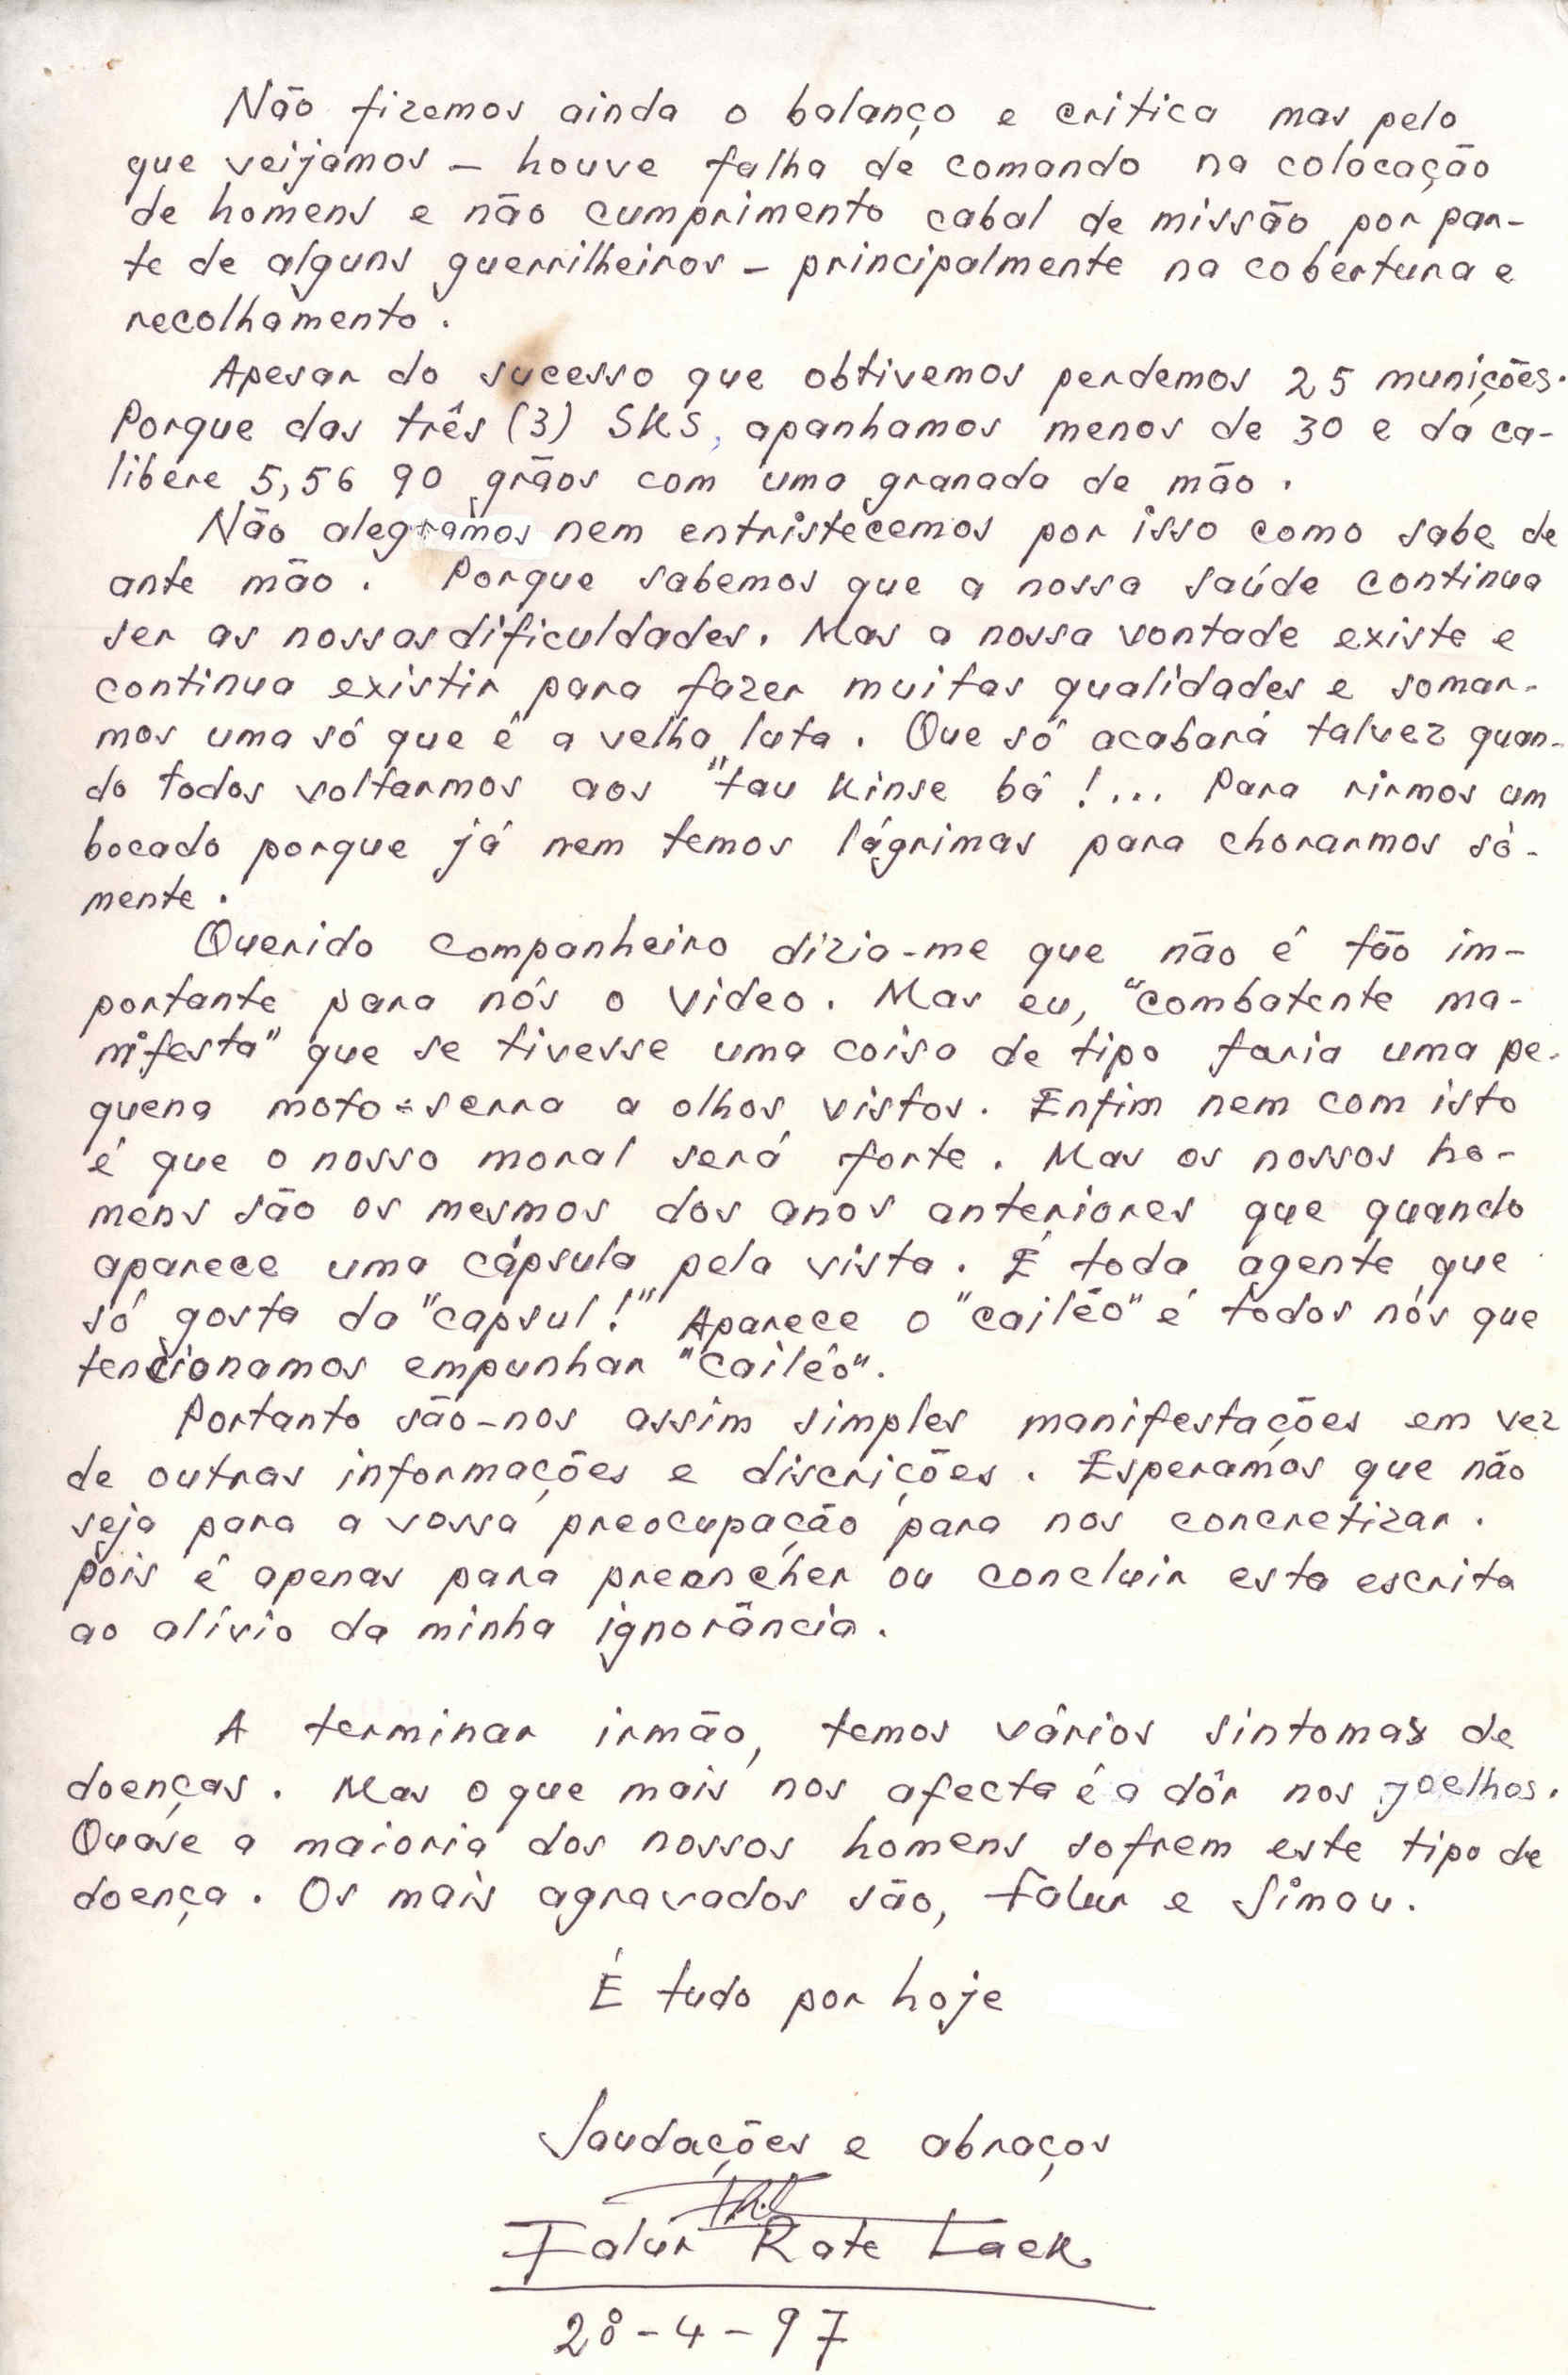 Não fizemos ainda o balanço e critica mas pelo
que veijamos - houve falha de comando na colocação
de homens e não cumprimento cabal de missão por par-
te de alguns guerrilheiros - principalmente na cobertura e
recolhamento.
Apesar do sucesso que obtivemos perdemos 25 munições.
Porque das três (3) SKS, apanhamos menos de 30 e da ca-
libere 5,56 90 grãos com uma granada de mão.
Não alegramos nem entristecemos por isso como sabe de
ante mão. Porque sabemos que a nossa saúde continua
ser as nossas dificuldades. Mas a nossa vontade existe e
continua existir para fazer muitas qualidades e somar-
mos uma só que é a velha luta. Que só acabará talvez quan-
do todos voltarmos aos "tau kinse bá!... Para rirmos um
bocado porque já nem temos lágrimas para chorarmos sò-
mente.
Querido companheiro dizia-me que não é tão im-
portante para nós o video. Mas eu, "combatente ma-
nifesta" que se tivesse uma coisa de tipo faria uma pe-
quena moto-serra a olhos vistos. Enfim nem com isto
é que o nosso moral será forte. Mas os nossos ho-
mens são os mesmos dos anos anteriores que quando
aparece uma cápsula pela vista. É toda agente que
só gosta da "capsul!" Aparece o "cailéo" é todos nós que
tencionamos empunhar "cailéo".
Portanto são-nos assim simples manifestações em vez
de outras informações e discrições. Esperamos que não
seja para a vossa preocupação para nos concretizar.
Pois é apenas para preencher ou concluir esta escrita
ao alívio da minha ignorância.
A terminar irmão, temos vários sintomas de
doenças. Mas o que mais nos afecta é a dôr nos joelhos.
Quase a maioria dos nossos homens sofrem este tipo de
doença. Os mais agravados são, Falur e Simou.
É tudo por hoje
Saudações e abraços
Falur Rate Laek
28-4-97